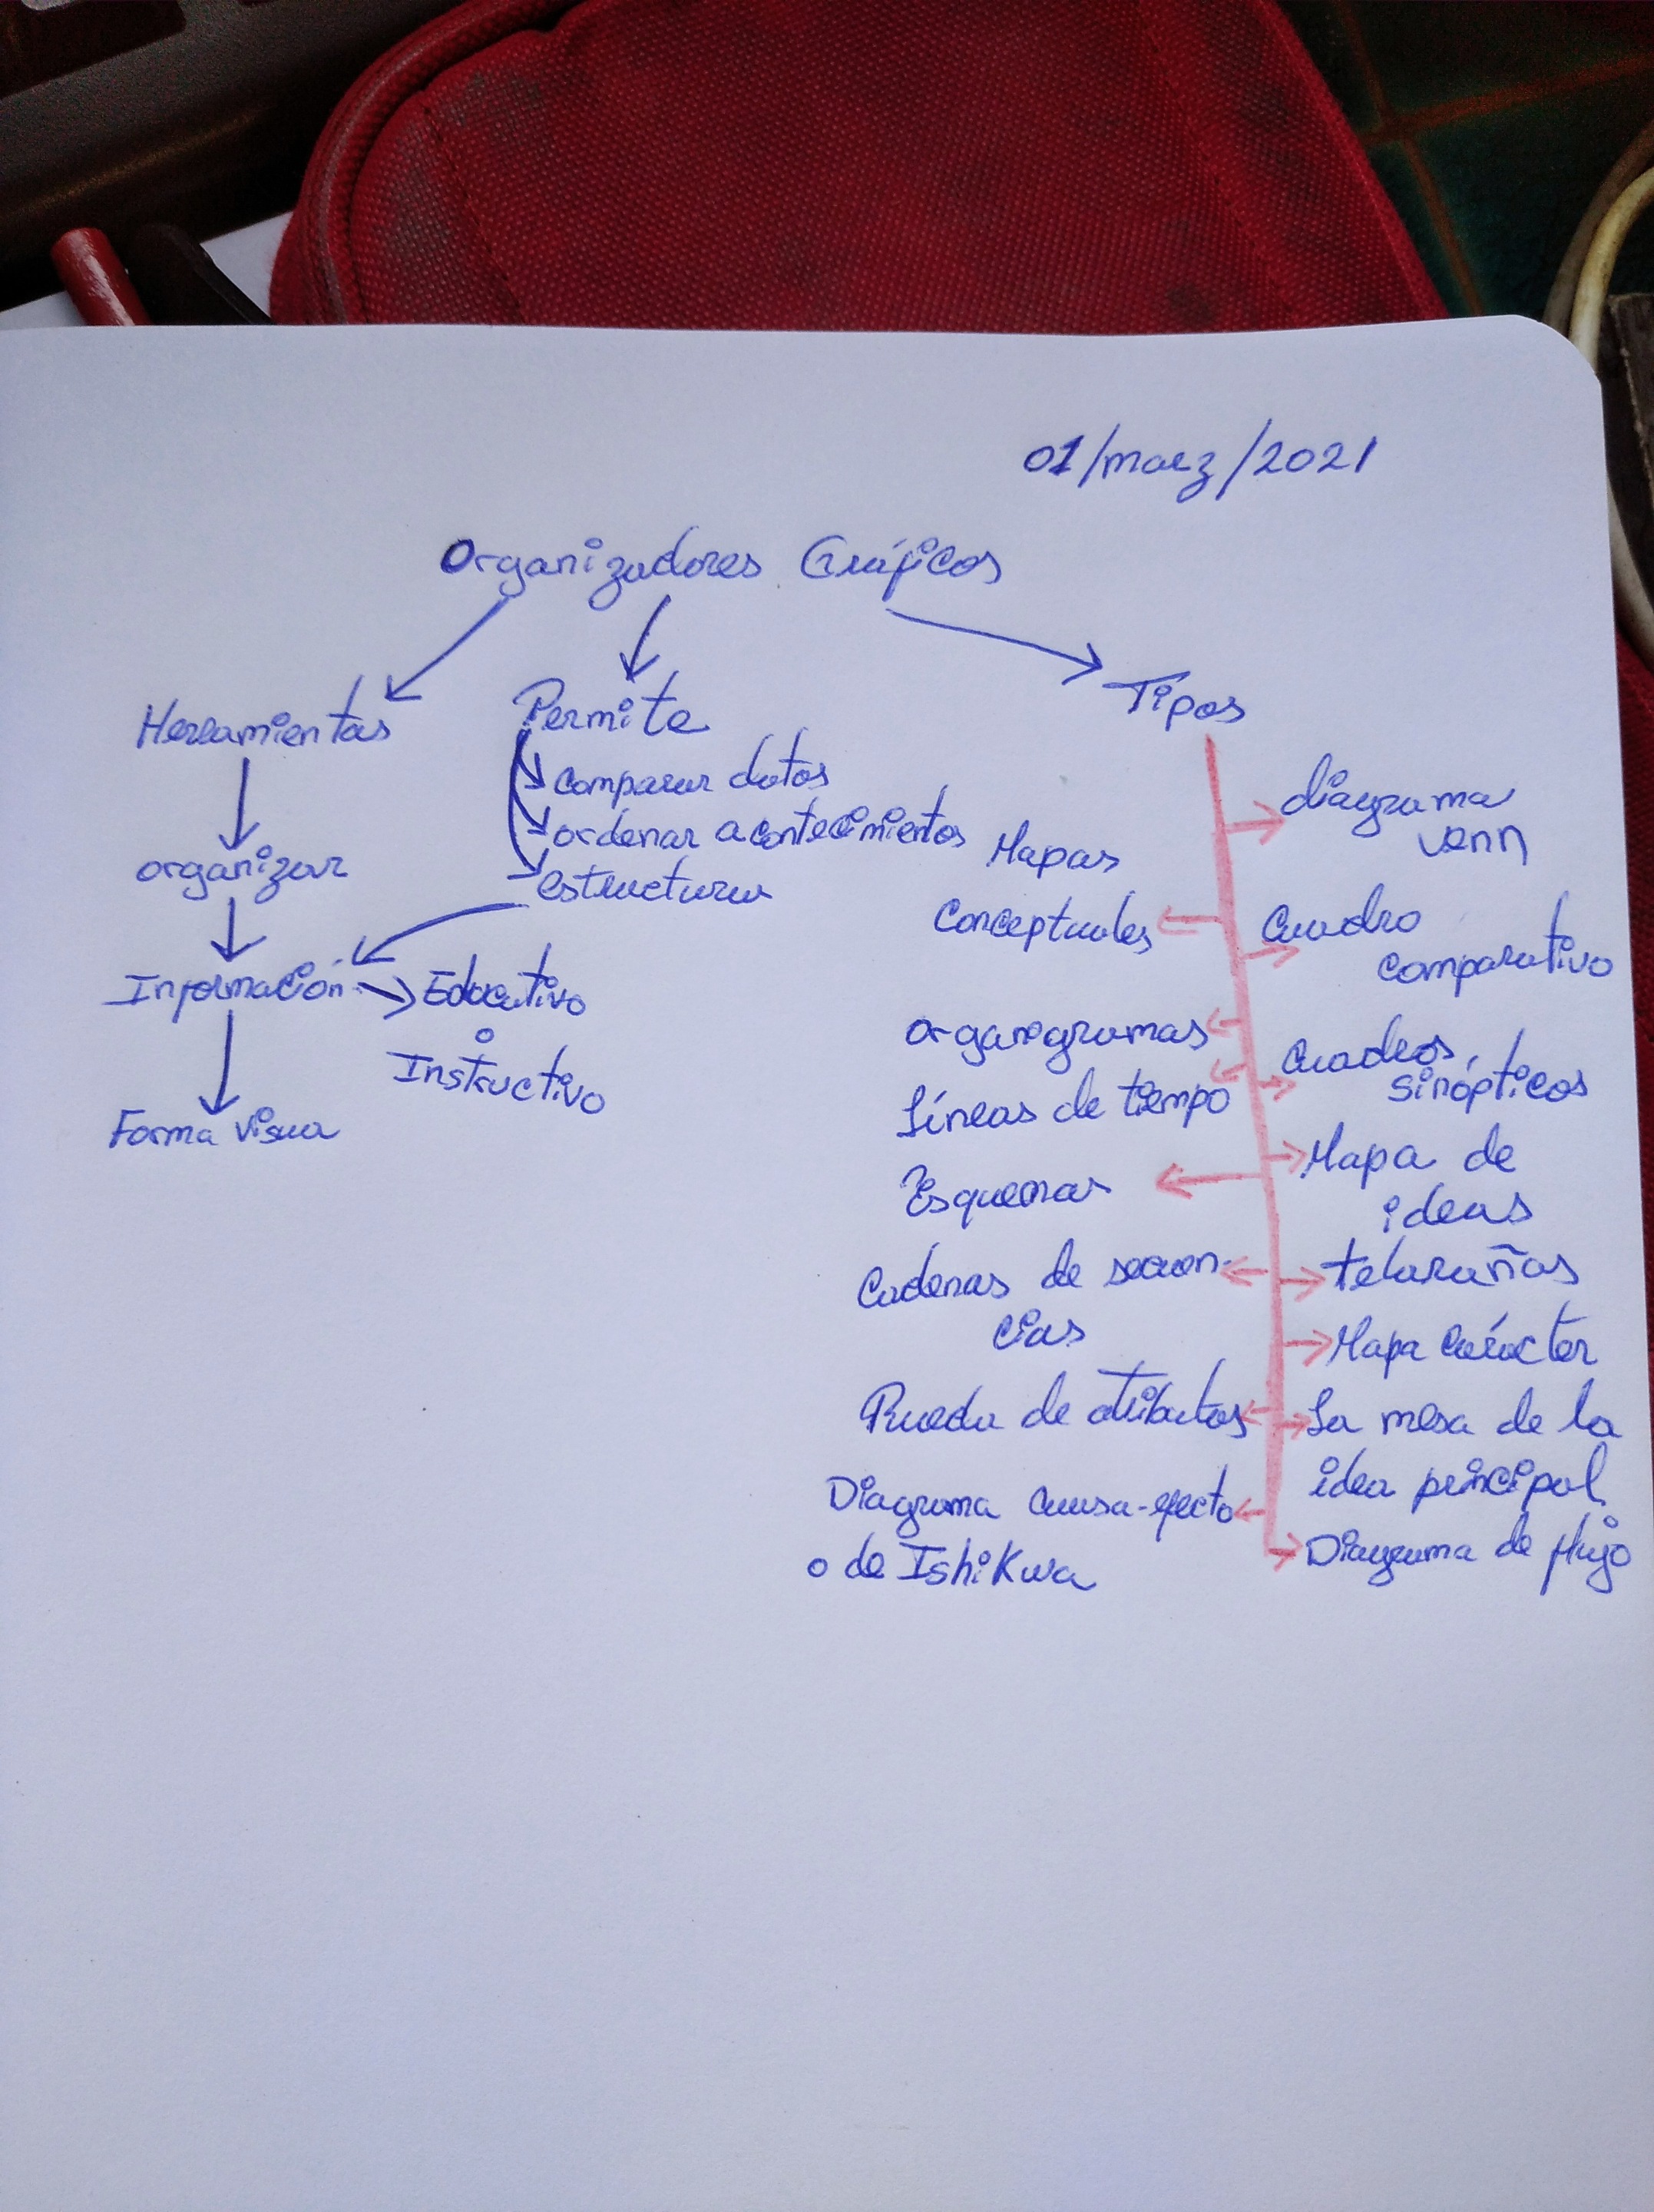 01/marz/2021
Organizadores Gráficos
Herramientas
organizar
Información
Forma visua
Educativo
o
Instructivo
Permite
comparar datos
ordenar acontecimientos
estructura
Tipos
diagrama
venn
Mapas
Conceptuales
Cuadro
comparativo
organigramas
Cuadros
sinópticos
Líneas de tiempo
Mapa de
ideas
Esquemas
Cadenas de secuen-
cias
telarañas
Mapa carácter
Rueda de atributos
La mesa de la
idea principal
Diagrama causa-efecto
o de Ishikwa
Diagrama de flujo